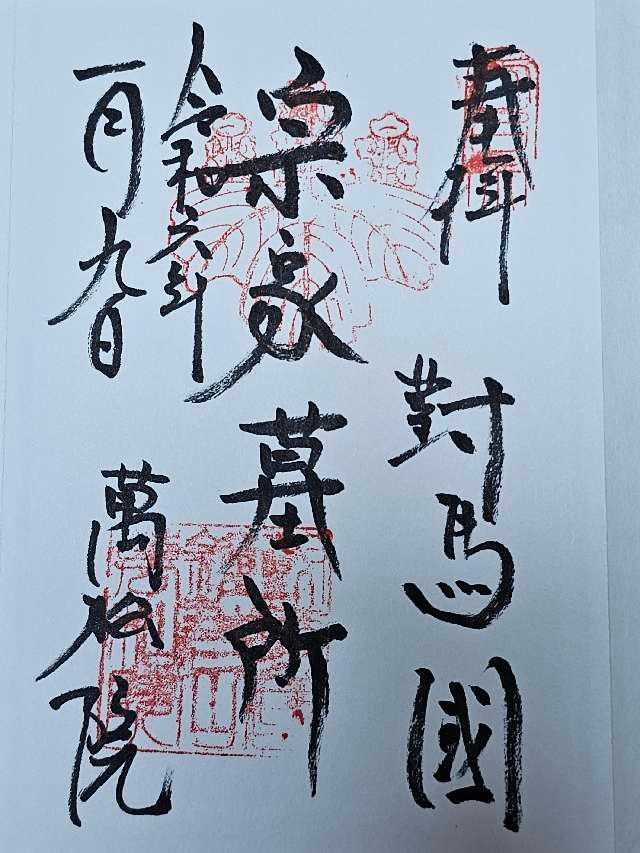 奉拝
對馬國
宗家墓所
令和六年
一月九日
萬松院